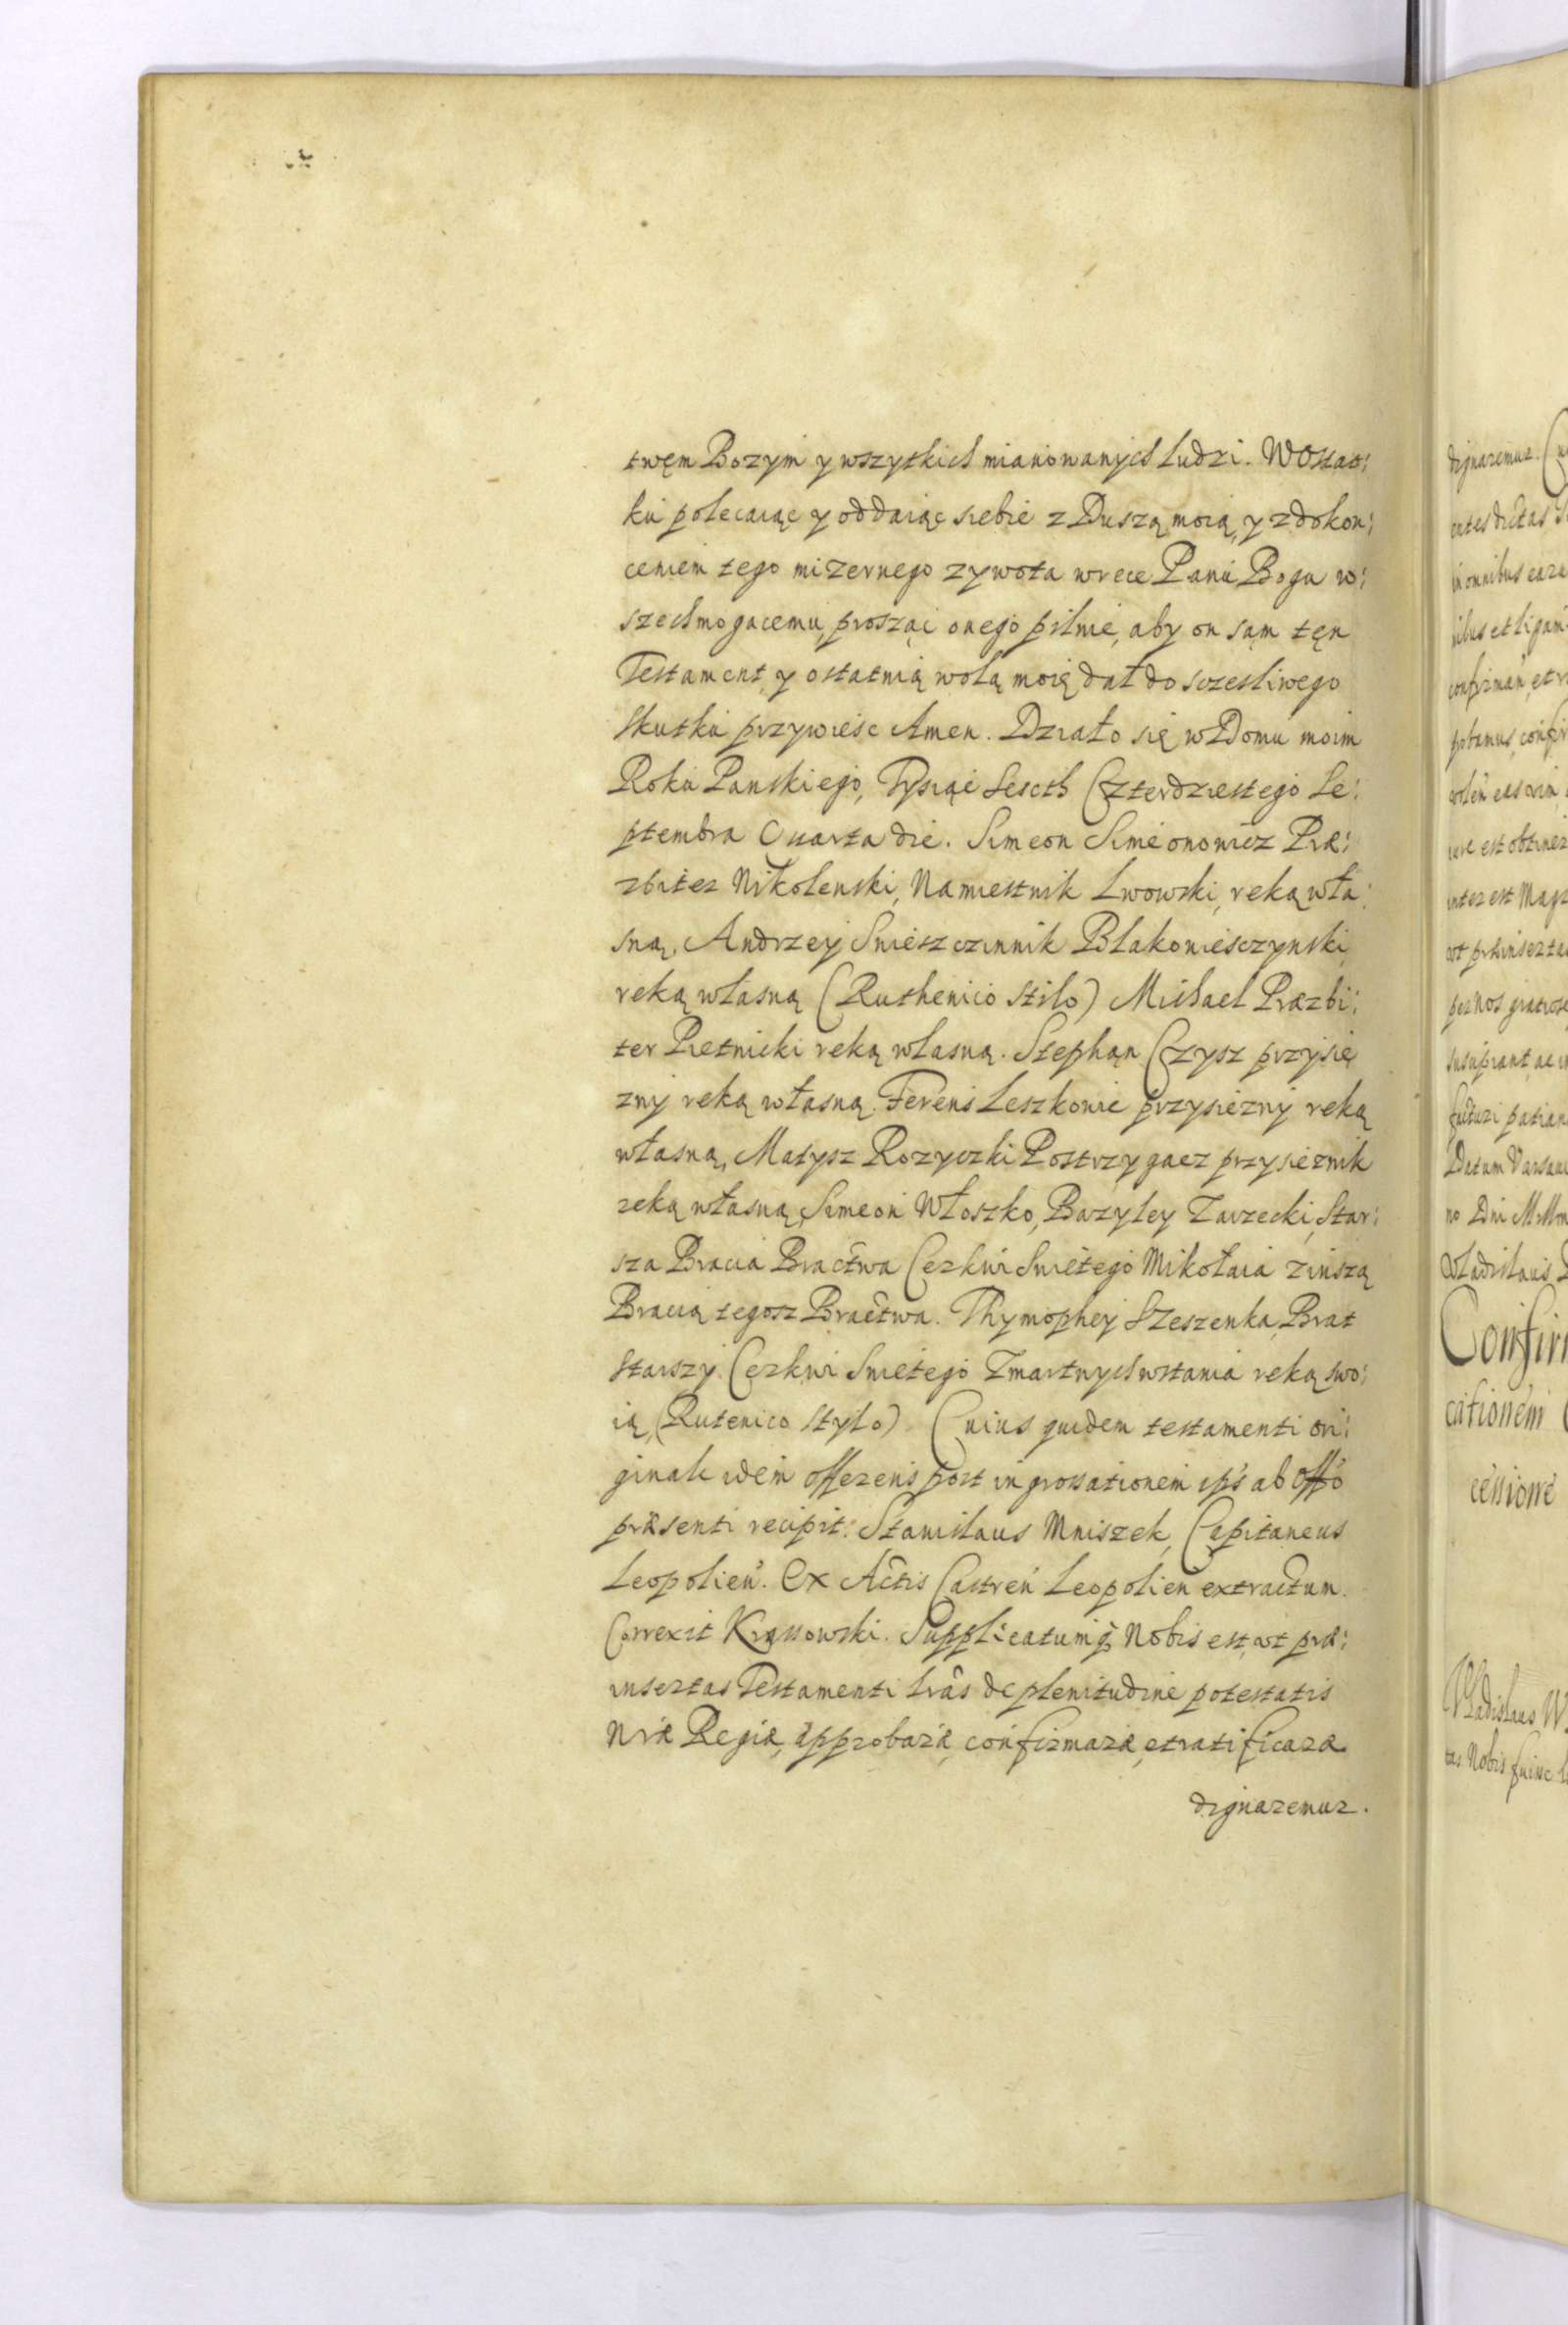 twęm Bozym y wszytkich mianowanych ludzi. W Ostat:
ku polecaiąc y oddaiąc siebie z Duszą moią, y z dokon:
ceniem tego mizernego zywota w rece Panu Bogu w:
szechmogacemu, prosząc onego pilnie, aby on sąm tęn
Testament, y ostatnią wolą moię dał do sczesliwego
skutku przywiesc Amen. Działo się w Domu moim
Roku Panskiego, Tysiąc Sescth Czterdziestego Se:
ptembra Quarta die. Simeon Simeonowicz Præ:
zbiter Nikolenski, Namiestnik Lwowski, reką wła:
sną, Andrzey Sniesczinnik Błakoniesczynski,
reką własną (Ruthenico stilo) Michael Præzbi:
ter Pietnicki reką własną. Stephąn Czysz przysię
zny reką własną. Ferens Leszkowic przysiezny reką
własną, Matysz Rozyczki Postrzygacz przysieznik
reką własną, Simeon Włoszko, Bazyley Zarzecki, Star:
sza Bracia Bractwa Cerkwi Swietego Mikołaia z inszą
Bracią tegosz Bractwa. Thymophey Szeszenka, Brat
starszy Cęrkwi Swietego Zmartwychwstania reką swo:
ią, (Rutenico stylo) Cuius quidem testamenti ori:
ginale idem offerens post ingrossationem ips ab offo
præsenti recipit: Stanislaus Mniszek, Capitaneus
Leopolien. Ex Actis Castren Leopolien extractum.
Correxit Krassowski. Supplicatumq Nobis est, vt præ:
insertas Testamenti lras de plenitudine potestatis
Nræ Regiæ, approbaræ, confirmaræ, et ratificaræ
dignaremur.
dignaremur.
in omnibus
Datum
Confir
cessione
Vladislaus
tas Nobis fuisse